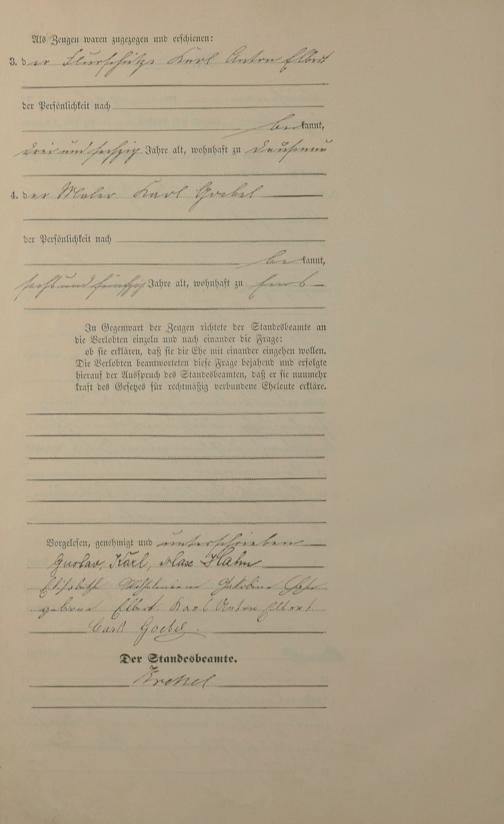 Als Zeugen waren zugezogen und erschienen:
3. der Flurschütz Karl Anton Elbert
der Persönlichkeit nach
bekannt,
drei und sechzig Jahre alt, wohnhaft zu Dausenau
4. der Maler Karl Goebel
der Persönlichkeit nach
bekannt,
sechs und fünfzig Jahre alt, wohnhaft zu Ems
In Gegenwart der Zeugen richtete der Standesbeamte an
die Verlobten einzeln und nach einander die Frage:
ob sie erklären, daß sie die Ehe mit einander eingehen wollen.
Die Verlobten beantworteten diese Frage bejahend und erfolgte
hierauf der Ausspruch des Standesbeamten, daß er sie nunmehr
kraft des Gesetzes für rechtmäßig verbundene Eheleute erkläre.
Vorgelesen, genehmigt und unterschrieben
Gustav, Karl, Max Hahn
Elisabeth Wilhelmine Jakobine Hahn
geborne Elbert. Karl Anton Elbert
Carl Goebel.
Der Standesbeamte.